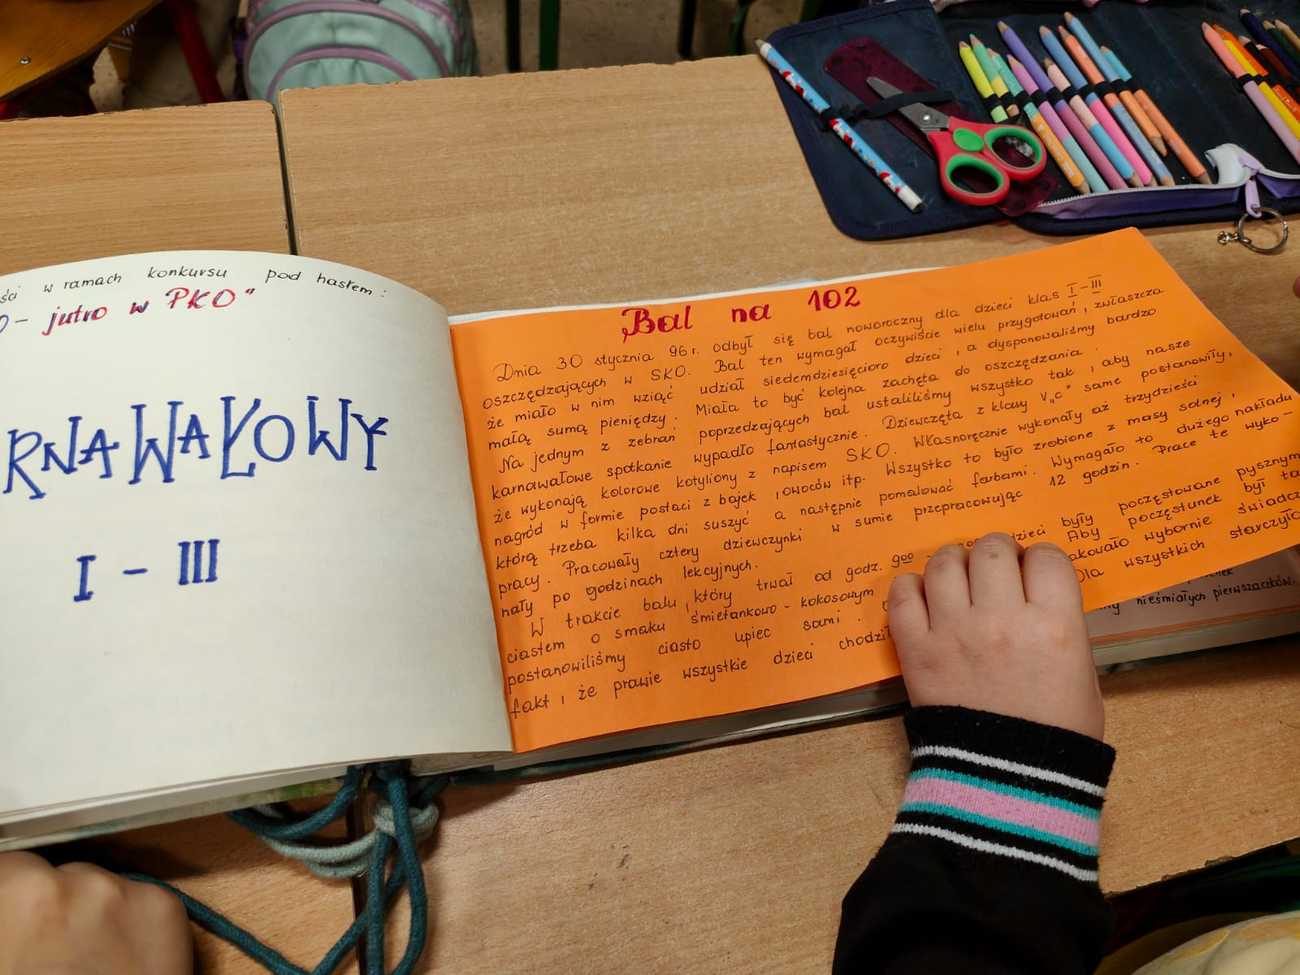 ści w ramach konkursu pod hasłem:
O - jutro w PKO"
RNAWAŁOWY
I - III
Bal na 102
Dnia 30 stycznia 96r. odbył się bal noworoczny dla dzieci klas I-III
oszczędzających w SKO. Bal ten wymagał oczywiście wielu przygotowań, zwłaszcza
że miało w nim wziąć udział siedemdziesięcioro dzieci, a dysponowaliśmy bardzo
małą sumą pieniędzy. Miała to być kolejna zachęta do oszczędzania.
Na jednym z zebrań poprzedzających bal ustaliliśmy wszystko tak, aby nasze
karnawałowe spotkanie wypadło fantastycznie. Dziewczęta z klasy V"c" same postanowiły,
że wykonają kolorowe kotyliony z napisem SKO. Własnoręcznie wykonały aż trzydzieści
nagród w formie postaci z bajek, owoców itp. Wszystko to było zrobione z masy solnej,
którą trzeba kilka dni suszyć a następnie pomalować farbami. Wymagało to dużego nakładu
pracy. Pracowały cztery dziewczynki w sumie przepracowując 12 godzin. Prace te wyko-
nały po godzinach lekcyjnych.
W trakcie balu, który trwał od godz. 900 - dzieci były poczęstowane pysznym
ciastem o smaku śmietankowo - kokosowym Aby poczęstunek był ta
postanowiliśmy ciasto upiec sami. akowało wybornie świadcz
fakt, że prawie wszystkie dzieci chodził Dla wszystkich starczyło
nieśmiałych pierwszaków.